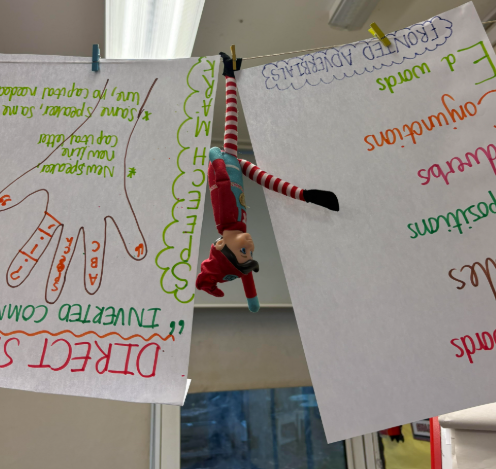 DIRECT S
INVERTED COMM
"
SPEECH MARKS
A B C
* New speaker
new line
capital letter
* Same speaker, same
line, no capital needed
ords
les
positions
dverbs
Conjunctions
Ed words
FRONTED ADVERBIALS